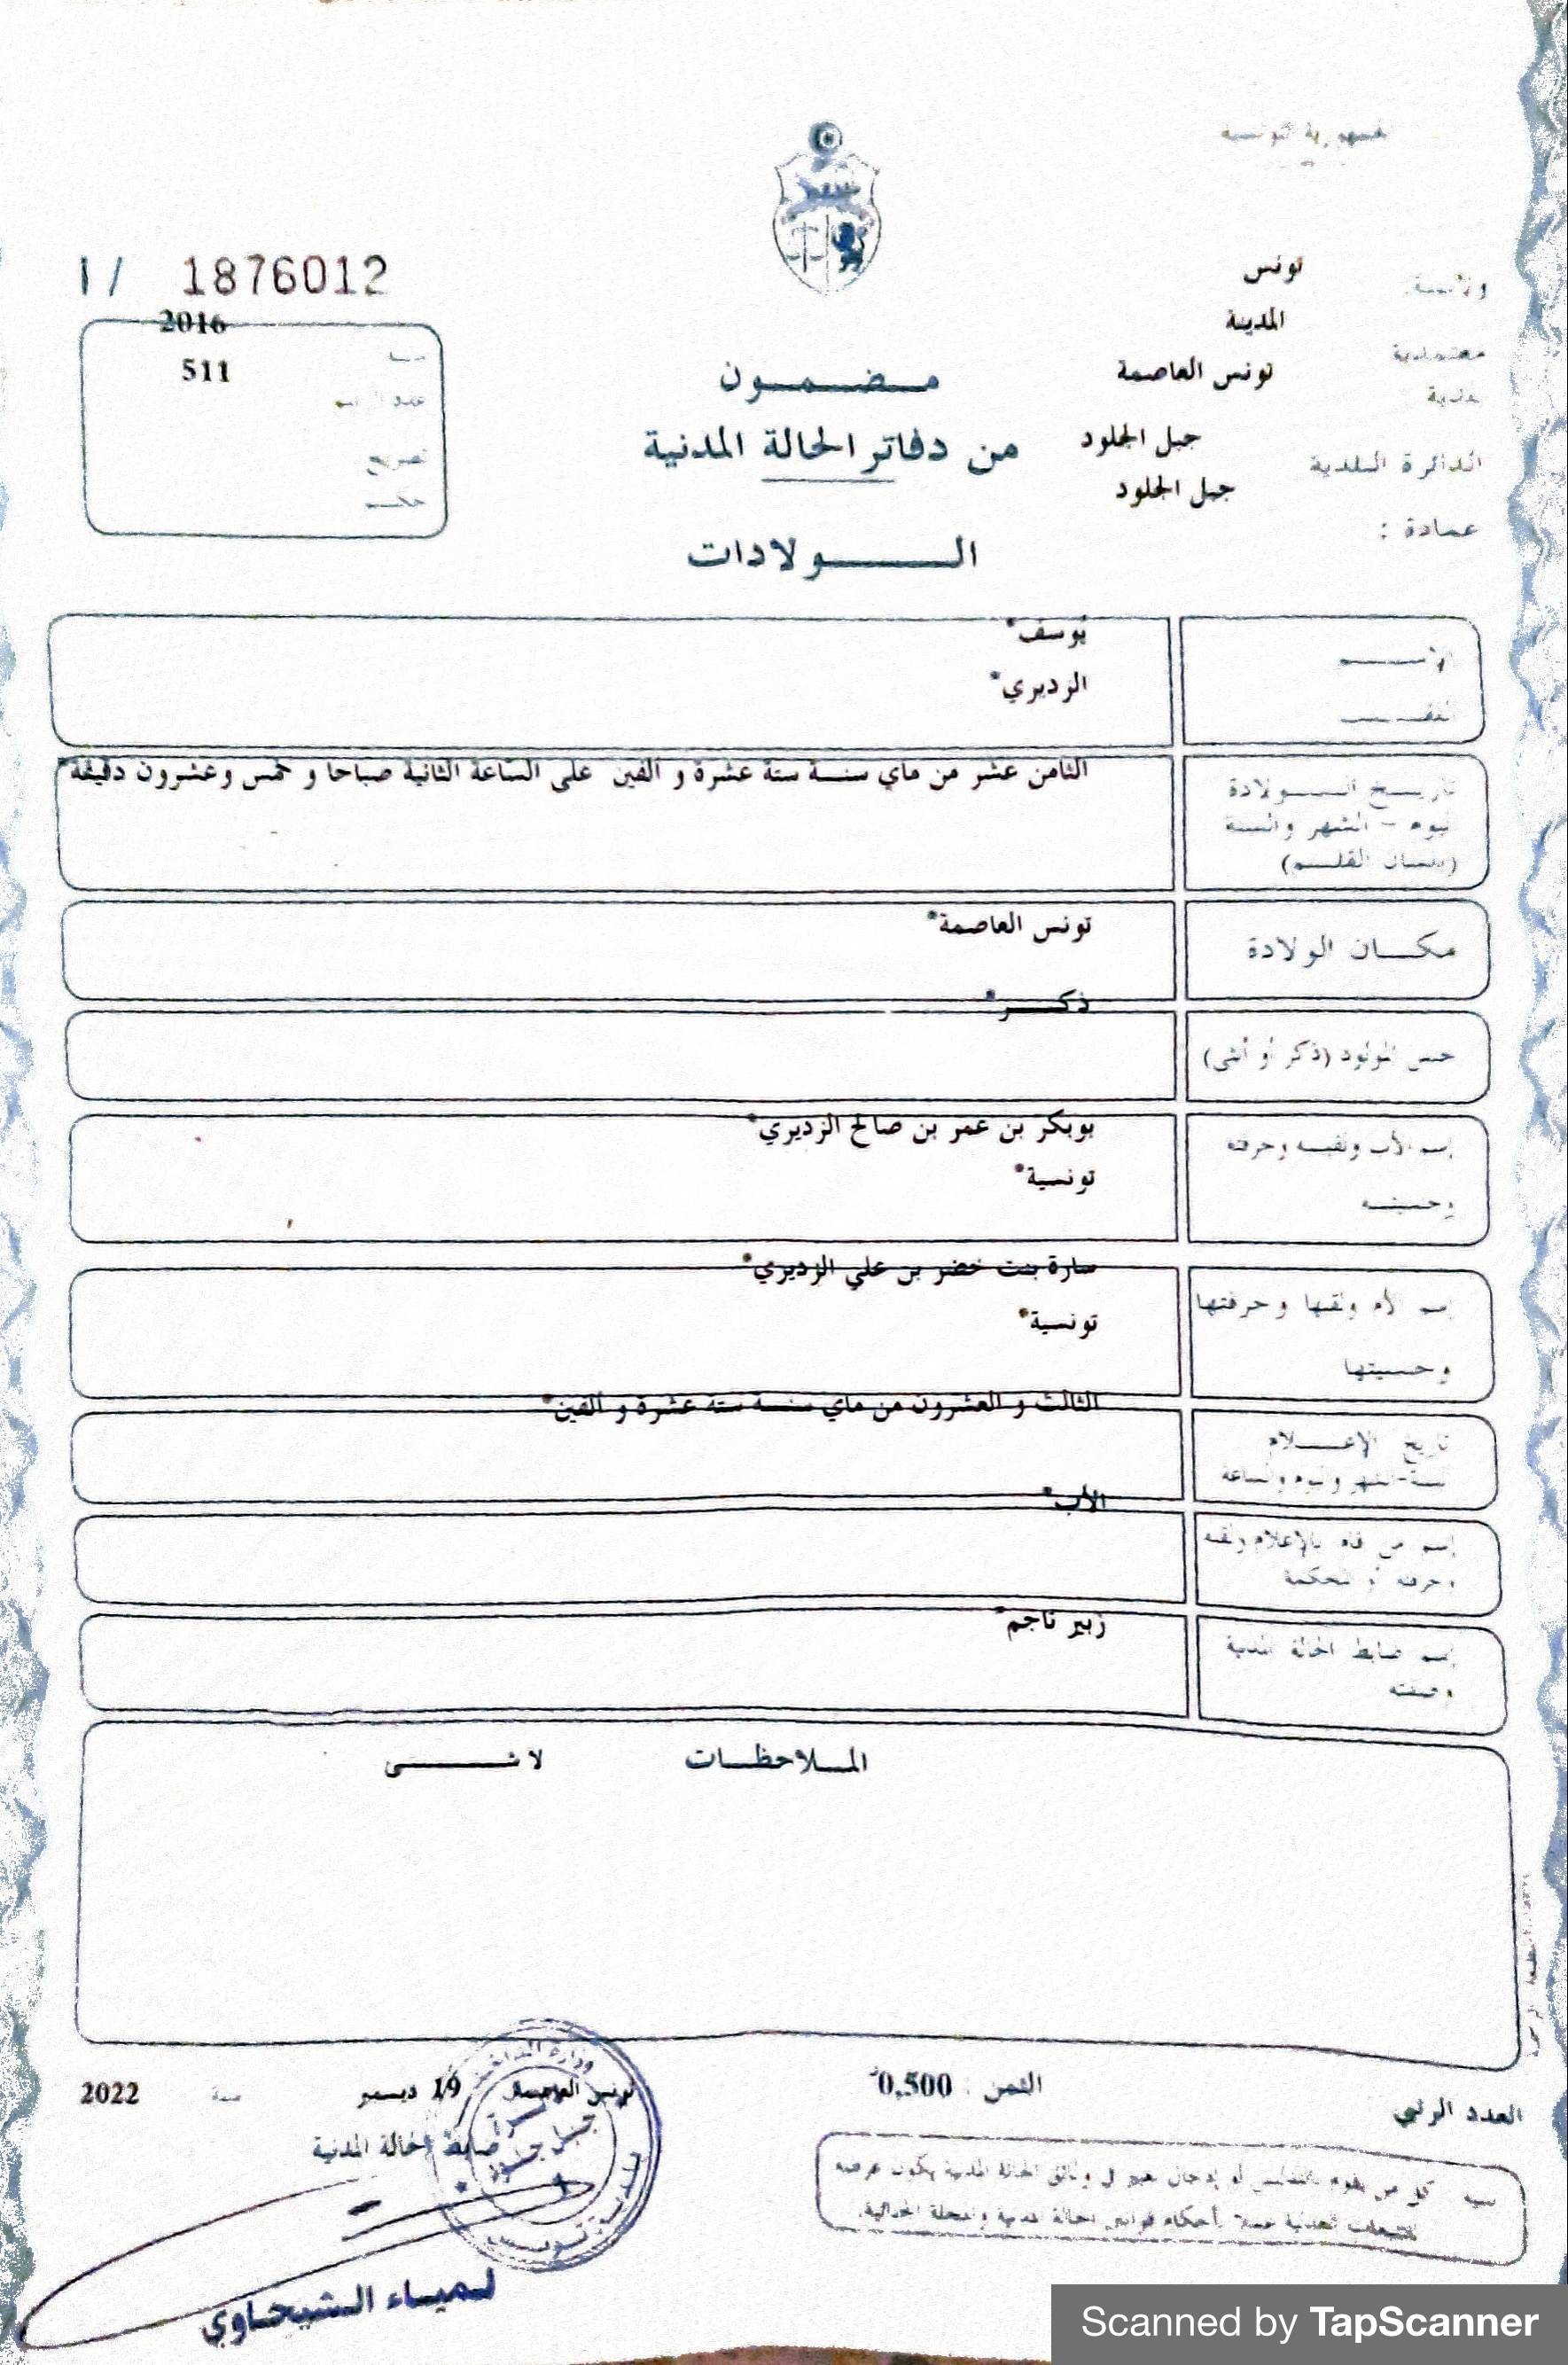 الجمهورية التونسية
I / 1876012
ولايـــة تونس
معتمدية المدينة
بلدية تونس العاصمة
الدائرة البلدية جبل الجلود
عمادة : جبل الجلود
2016
511
عدد الرسم
تصريح
حكم
مـضـمـون
من دفاتر الحالة المدنية
الـــولادات
الإســـم يوسف*
اللقب الزديري*
تاريـخ الـــولادة
اليوم - الشهر والسنة
(بلسان القلـم)
الثامن عشر من ماي سنـة ستة عشرة و الفين على الساعة الثانية صباحا و خمس وعشرون دقيقة*
مكـان الولادة تونس العاصمة*
جنس المولود (ذكر أو أنثى) ذكـر*
إسم الأب ولقبـه وحرفته بوبكر بن عمر بن صالح الزديري*
وجنسيتـه تونسية*
إسم الأم ولقبها وحرفتها سارة بنت خضر بن علي الزديري*
وجنسيتها تونسية*
تاريخ الإعـلام
السنة-الشهر واليوم والساعة
الثالث و العشرون من ماي سنـة ستة عشرة و الفين*
إسم من قام بالإعلام ولقبه
وحرفته أو المحكمة
الأب*
إسم ضابط الحالة المدنية
وصفته
زبير ناجم*
المـلاحظـات لا شـــى
العدد الرتبي
الثمن : 0,500
تونس العاصمة 19 ديسمبر سنة 2022
ضابط الحالة المدنية
وزارة الداخلية
جبل جلود
بلدية تونس
تنبيه كل من يقوم بالتدليس أو إدخال تغيير في وثائق الحالة المدنية يكون عرضة
للتتبعات العدلية عملا بأحكام قوانين الحالة المدنية والمجلة الجزائية.
لـميـاء الـشيحـاوي
Scanned by TapScanner